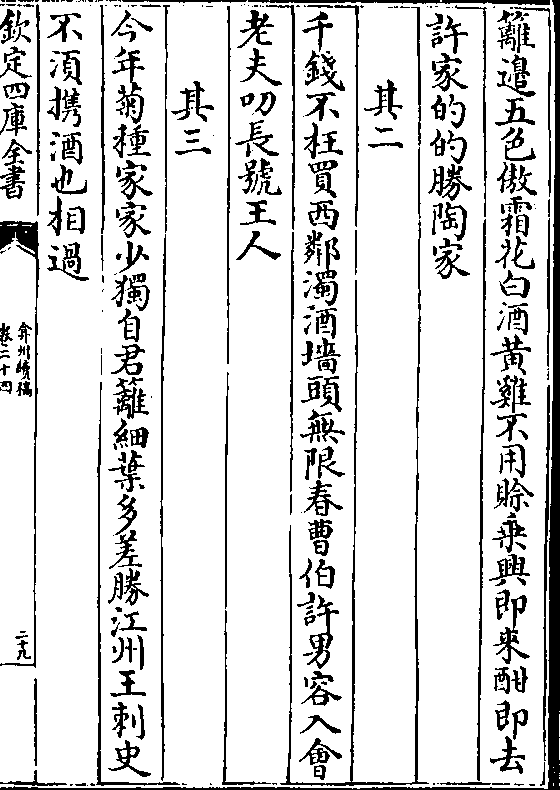 籬邉五色傲霜花白酒黄雞不用賒乗興即来酣即去
許家的的勝陶家
其二
千錢不枉買西鄰濁酒墻頭無限春曹伯許男容入會
老夫叨長號王人
其三
今年菊種家家少獨自君籬細葉多差勝江州王刺史
不湏携酒也相過
欽定四庫全書
弇州續稿
卷二十四
二十九